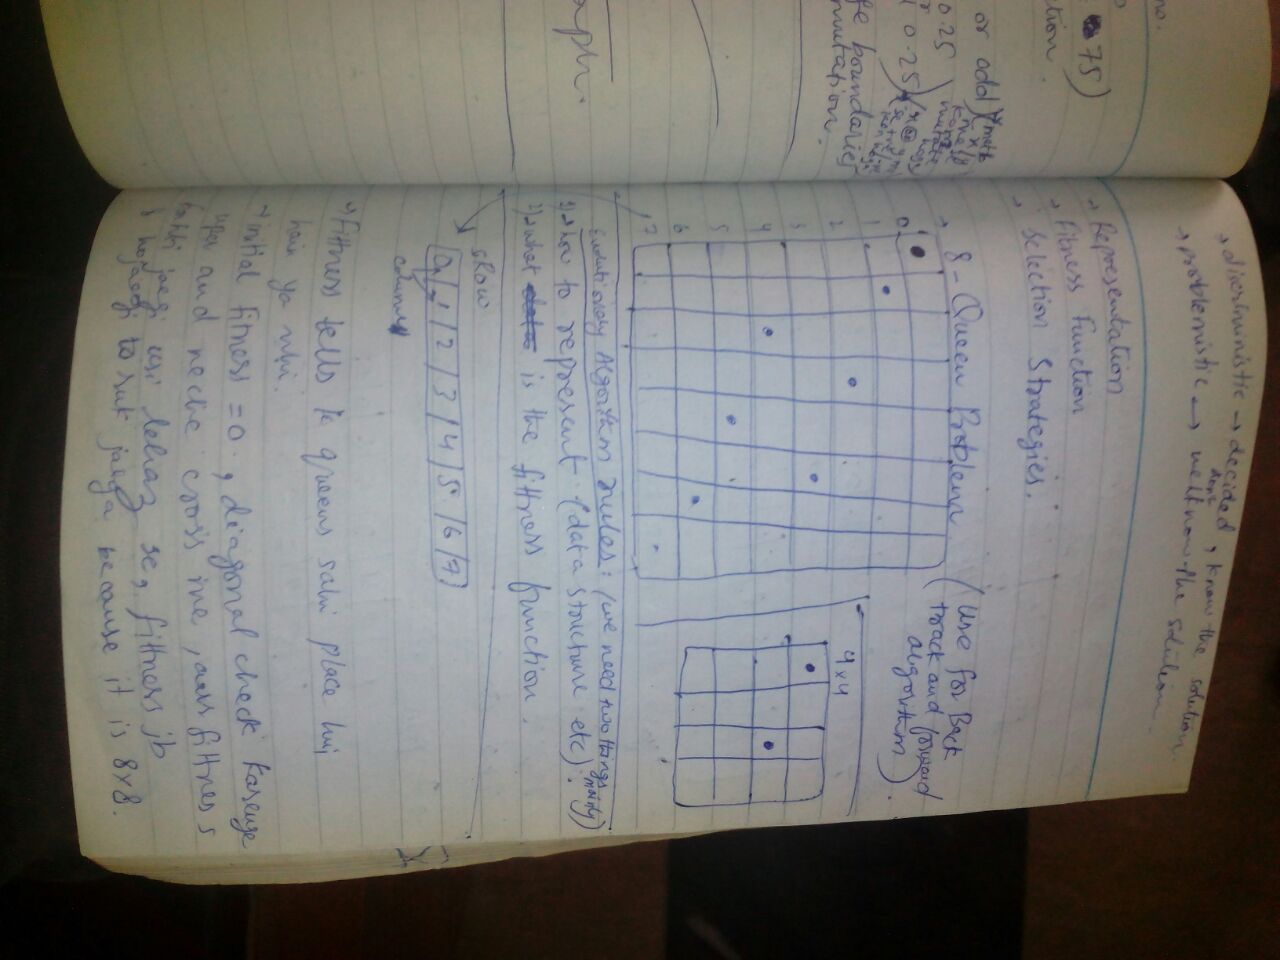 no.
ction.
75)
or add
0.25
0.25)
ge boundaries
mutation.
aph.
→ diserministic → decided, know the solution.
→ problemistic → dont know the solution.
→ Representation
→ Fitness Function
→ Selection Strategies.
→ 8-Queen Problem (Use for Back
track and forward
algorithm).
0
1
2
3
4
5
6
7
4x4
Evolutionary Algorithm rules: (we need two things mainly)
1) → how to represent (data structure etc).
2) → what is the fitness function.
row
0/1/2/3/4/5/6/7
column
→ fitness tells ke queens sahi place hui
hain ya nhi.
→ initial fitness = 0, diagonal check karenge
uper and neeche cross me,
fitness
barhti jaegi usi lehaz se, fitness jb
8 hojaegi to ruk jaega because it is 8x8.